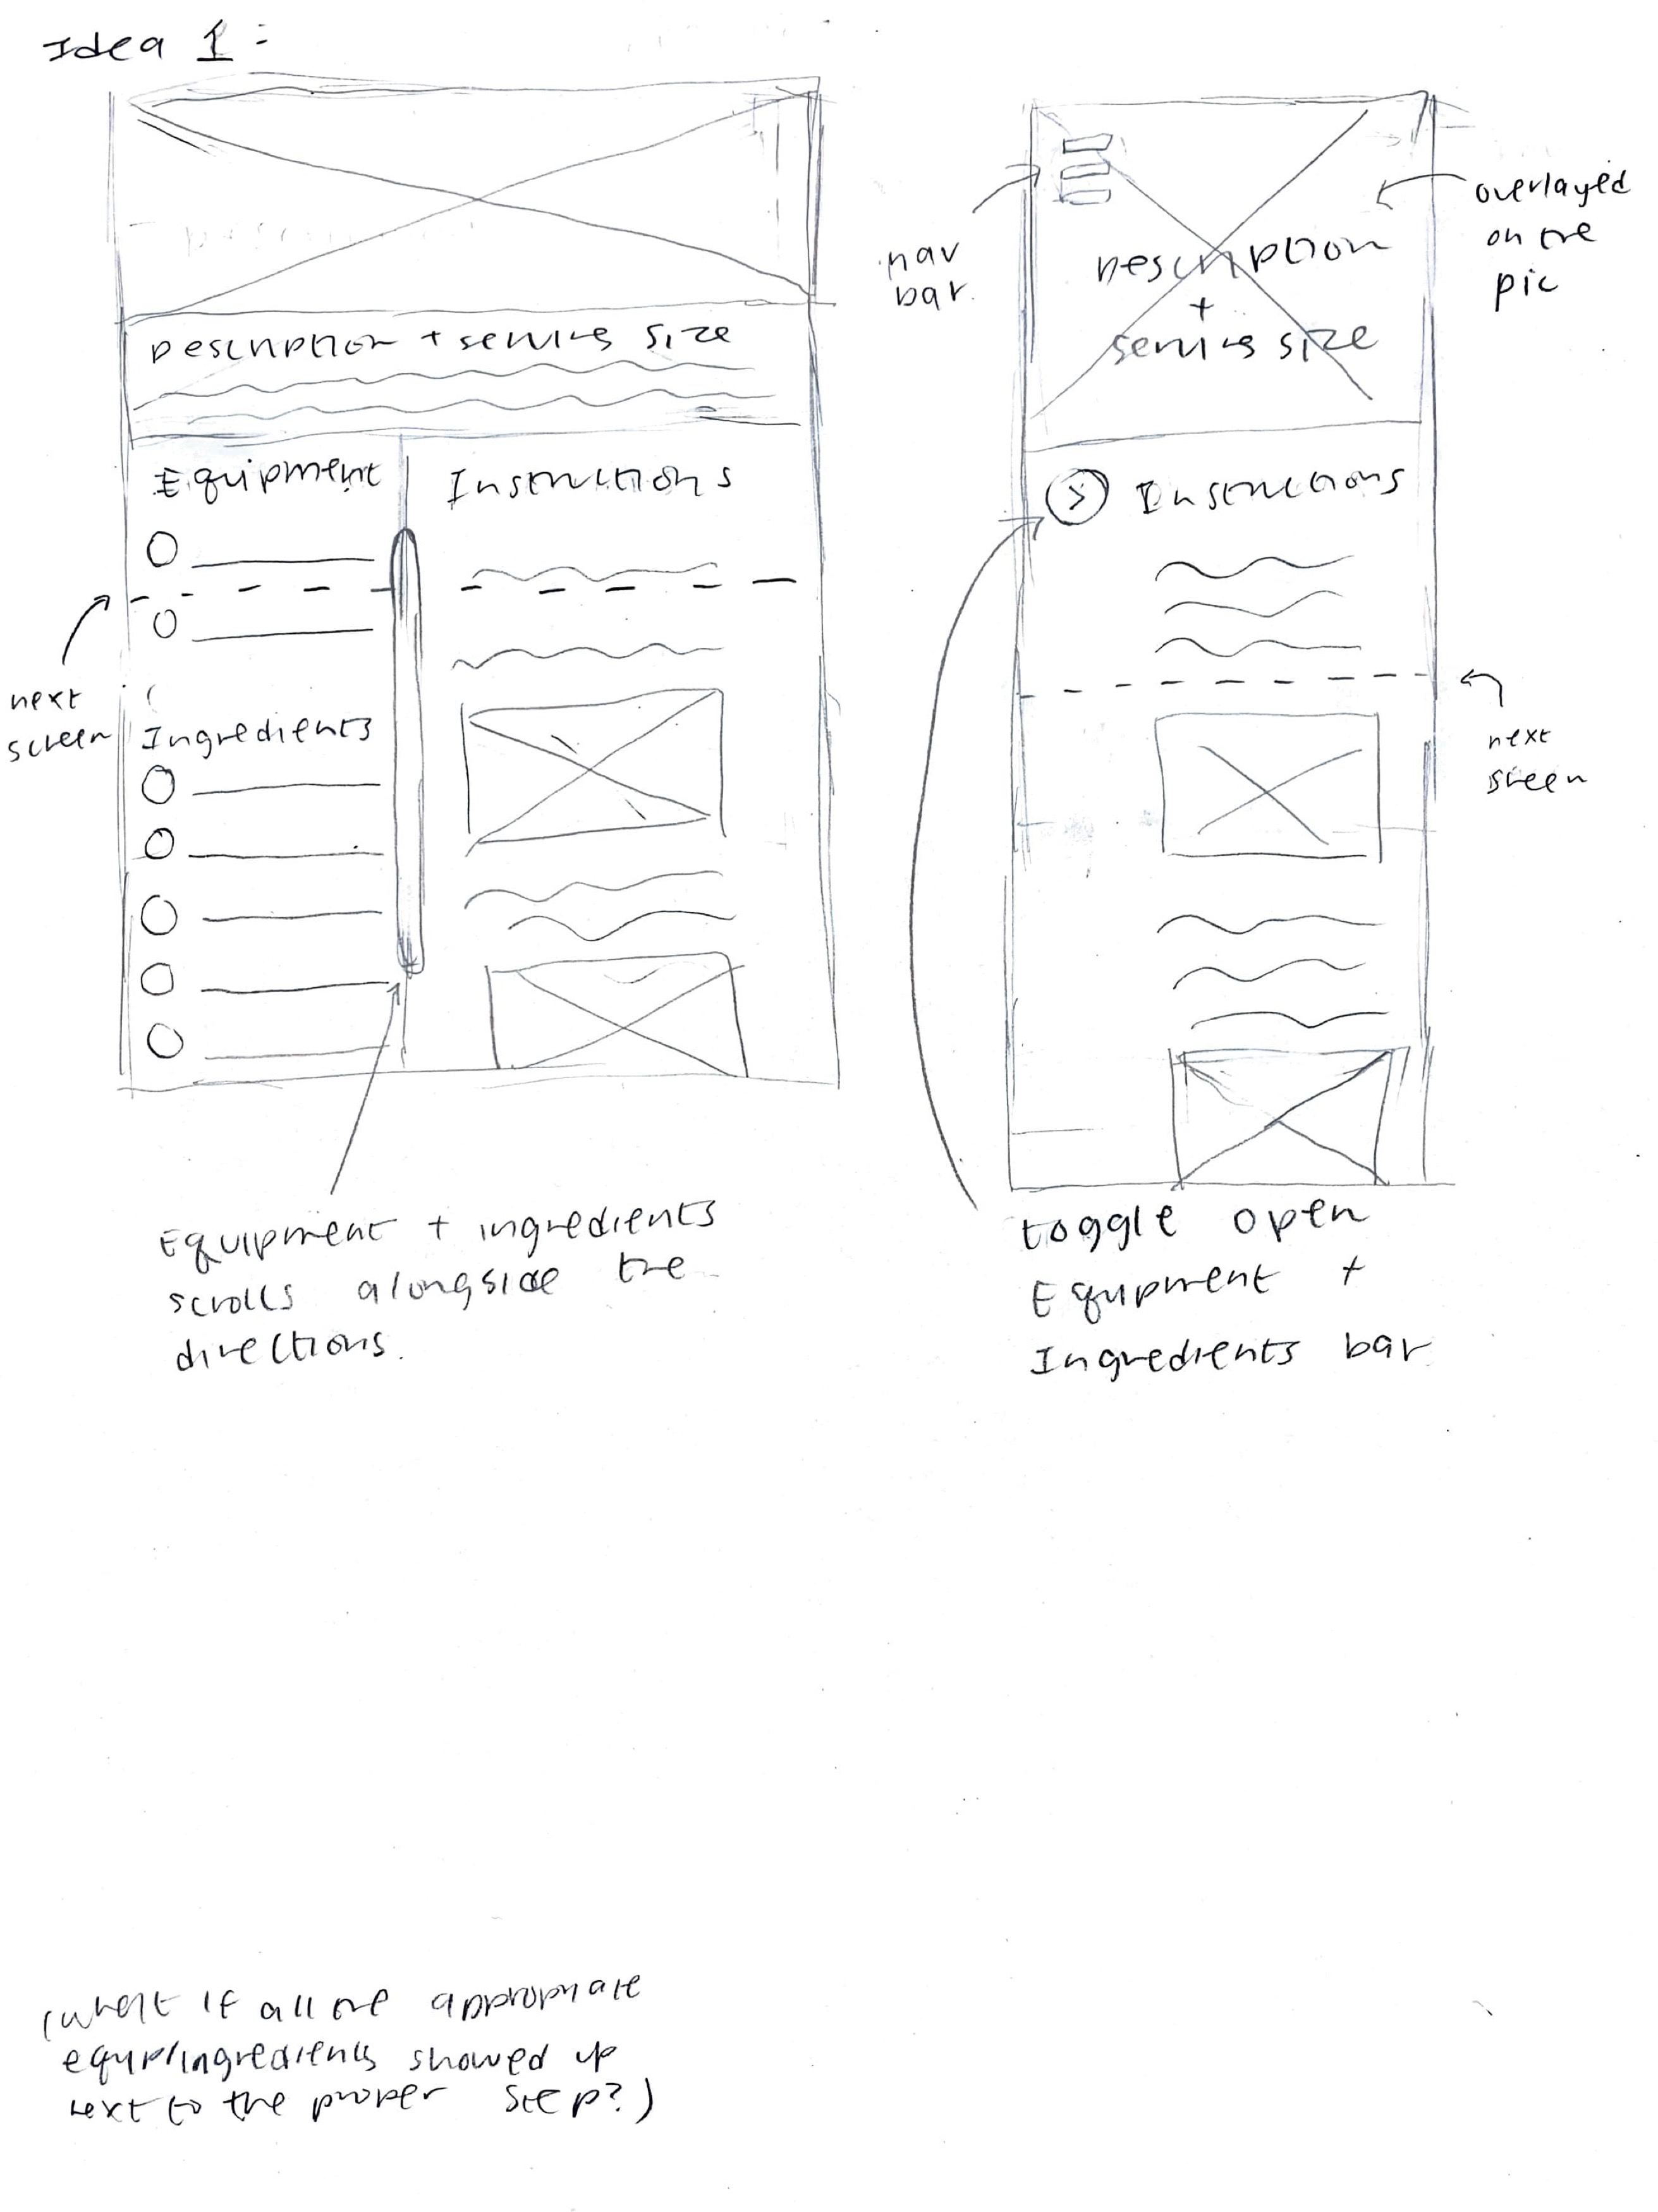 Idea 1:
Description + serving size
Equipment
Instructions
next
screen
Ingredients
Equipment + ingredients
scrolls alongside the
directions.
nav
bar
overlayed
on the
pic
Description
+
serving size
Instructions
next
sreen
toggle open
Equipment +
Ingredients bar
(what if all the appropriate
equip/ingredients showed up
next to the proper step?)